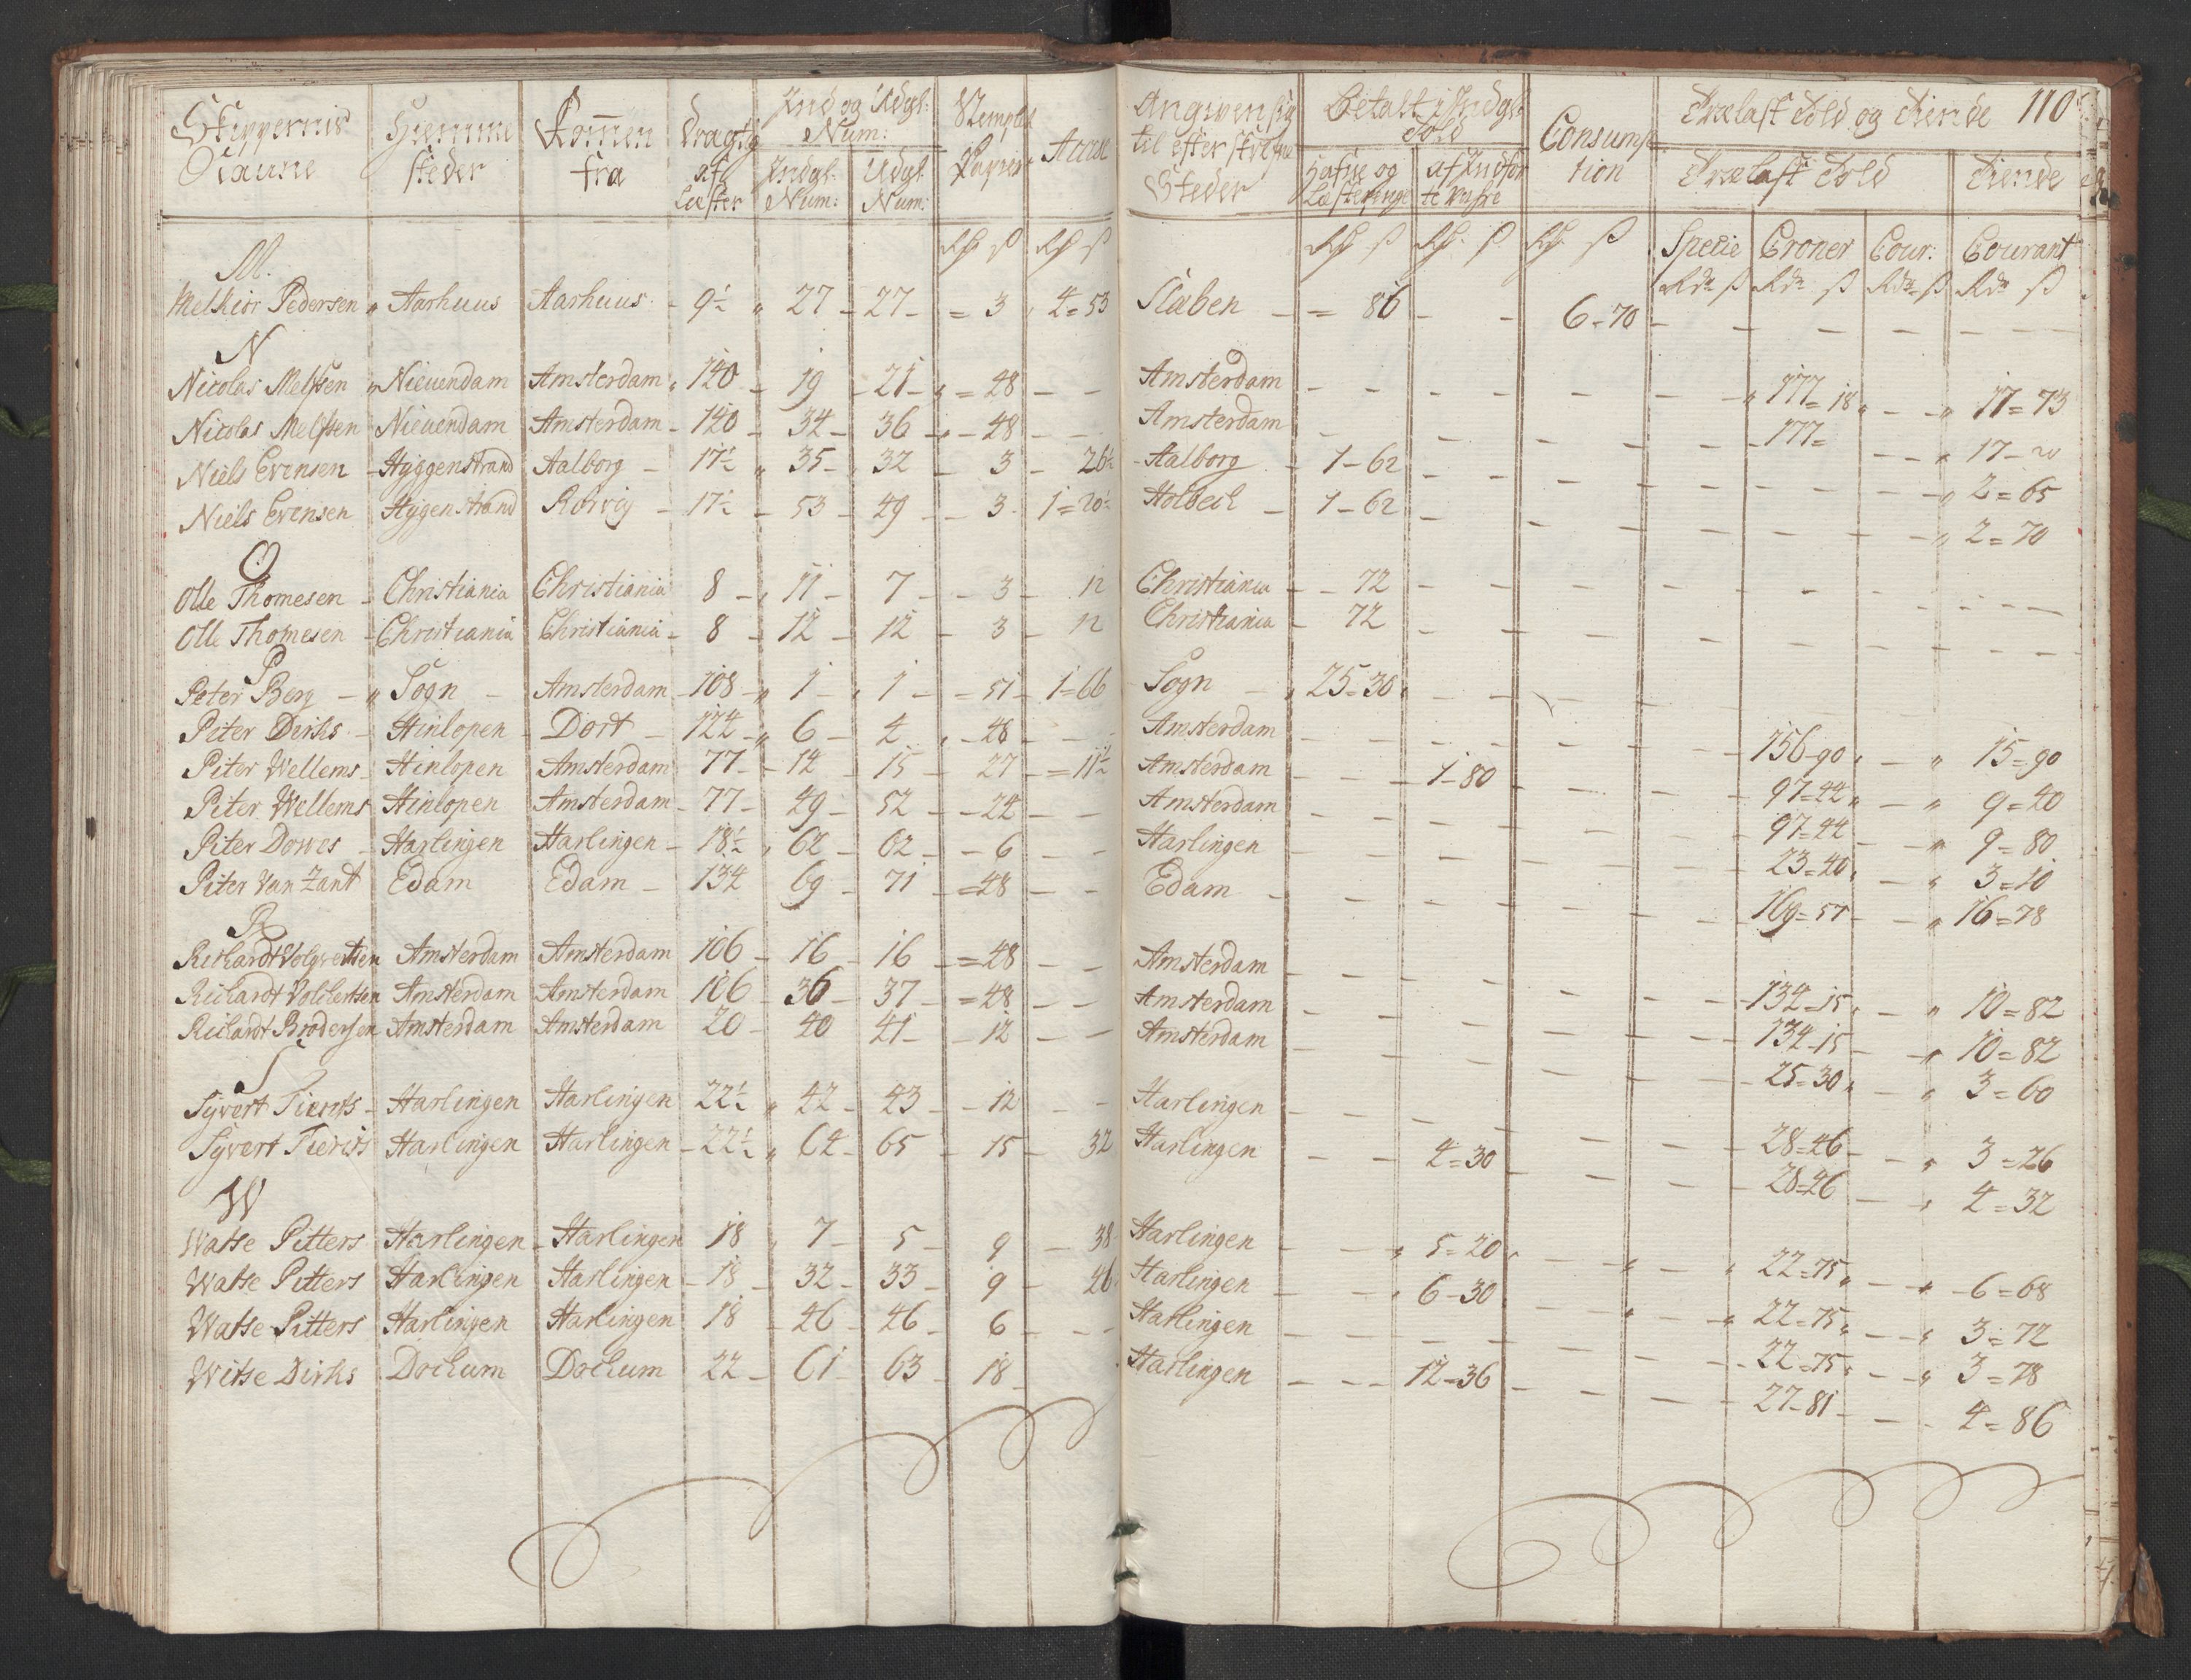 Skippernis Naune | Hiemme steder | Kommen fra | Dragtig af Læster | Ind og Udgl: Num: | Stemplet Papier | Accise
Indgl. Num: | Udgl Num:
Angiven sig til efterskrefne Steder | Betalt i Indgl: Told | Consumption | Trælast Told og Tiende | 110
Hafne og Læstepenge | af Indførte Vahre | Trælast Told | Tiende
Specie | Croner | Cour: | Courant
M.
Melkior Pedersen | Aarhuus | Aarhuus | 9½ | 27 | 27 | 3 | 4=53 | Slaben | 86 | - | 6-70
N
Nicolas Melssen | Nieuendam | Amsterdam | 140 | 19 | 21 | 48 | - | Amsterdam | 177=18 | 17=73
Nicolas Melssen | Nieuendam | Amsterdam | 140 | 34 | 36 | 48 | - | Amsterdam | 177= | 17-20
Niels Evensen | Hyggenstrand | Aalborg | 17½ | 35 | 32 | 3 | 26½ | Aalborg | 1-62 | 2=65
Niels Evensen | Hygenstrand | Rørvig | 17½ | 53 | 49 | 3 | 1=20½ | Holbeck | 1-62 | 2=70
O
Olle Thomesen | Christiania | Christiania | 8 | 11 | 7 | 3 | 12 | Christiania | 72
Olle Thomesen | Christiania | Christiania | 8 | 12 | 12 | 3 | 12 | Christiania | 72
P
Peter Berg | Sogn | Amsterdam | 108 | 1 | 1 | 51 | 1=66 | Sogn | 25=30
Piter Dirks | Hinlopen | Dort | 124 | 6 | 4 | 48 | - | Amsterdam | 156-90 | 15=90
Piter Wellems | Hinlopen | Amsterdam | 77 | 14 | 15 | 27 | 11½ | Amsterdam | 1-80 | 97=44 | 9=40
Piter Wellems | Hinlopen | Amsterdam | 77 | 49 | 52 | 24 | - | Amsterdam | 97=44 | 9=80
Piter Dowes | Harlingen | Harlingen | 18½ | 62 | 62 | 6 | - | Harlingen | 23=40 | 3=10
Piter Van Zant | Edam | Edam | 134 | 69 | 71 | 48 | - | Edam | 169=57 | 16=78
R
Richardt Volqvertsen | Amsterdam | Amsterdam | 106 | 16 | 16 | 48 | - | Amsterdam | 134-15 | 10=82
Richardt Volckertsen | Amsterdam | Amsterdam | 106 | 36 | 37 | 48 | - | Amsterdam | 134-15 | 10=82
Richardt Brodersen | Amsterdam | Amsterdam | 20 | 40 | 41 | 12 | - | Amsterdam | 25=30 | 3=60
S
Syvert Tierits | Harlingen | Harlingen | 22½ | 42 | 43 | 12 | - | Harlingen | 28=46 | 3=26
Syvert Tierits | Harlingen | Harlingen | 22½ | 64 | 65 | 15 | 32 | Harlingen | 4=30 | 28=46 | 4=32
W
Watse Pitters | Harlingen | Harlingen | 18 | 7 | 5 | 9 | 38 | Harlingen | 5=20 | 22=75 | 6=68
Watse Pitters | Harlingen | Harlingen | 18 | 32 | 33 | 9 | 46 | Harlingen | 6-30 | 22=75 | 3=72
Watse Pitters | Harlingen | Harlingen | 18 | 46 | 46 | 6 | - | Harlingen | 22=75 | 3=78
Witse Dirks | Dockum | Dockum | 22 | 61 | 63 | 18 | Harlingen | 12=36 | 27-81 | 4=86